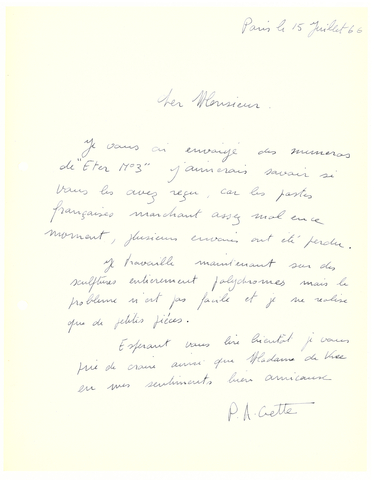 Paris le 15 Juillet 66
Cher Monsieur.
Je vous ai envoyé des numeros
de "Eter N°3" j'aimerais savoir si
vous les avez reçu, car les postes
françaises marchant assez mal en ce
moment, plusieurs envois ont été perdu.
Je travaille maintenant sur des
sculptures entierement polychromes mais le
probleme n'est pas facile et je ne realise
que de petites pièces.
Esperant vous lire bientôt je vous
prie de croire ainsi que Madame de Vree
en mes sentiments bien amicaux
P A. Gette